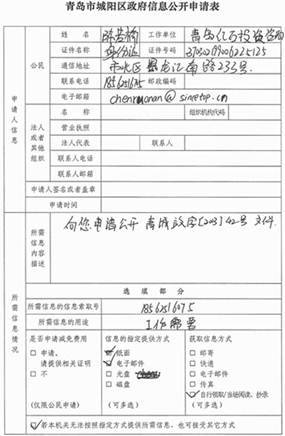 青岛市城阳区政府信息公开申请表
申请人信息
公民
姓 名
工作单位
证件名称 身份证 证件号码
通信地址 市北区黑龙江南路233号
联系电话 邮政编码
电子邮箱
法人或者其他组织
名 称 组织机构代码
营业执照
法人代表 联系人
联系人电话
联系人邮箱
申请人签名或者盖章
申请时间
所需信息情况
所需信息内容描述
向您申请公开 文件
选 填 部 分
所需信息的信息索取号
所需信息的用途 工作需要
是否申请减免费用
□ 申请。
请提供相关证明
□ 不
(仅限公民申请)
信息的指定提供方式
纸面
电子邮件
□ 光盘
□ 磁盘
(可多选)
获取信息方式
□ 邮寄
□ 快递
□ 电子邮件
□ 传真
自行领取/当场阅读、抄录
(可多选)
若本机关无法按照指定方式提供所需信息,也可接受其它方式